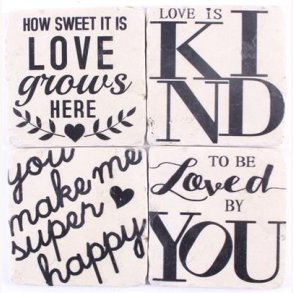 HOW SWEET IT IS
LOVE
grows
HERE
LOVE IS
KI
ND
you
make me
super
happy
TO BE
Loved
BY
YOU